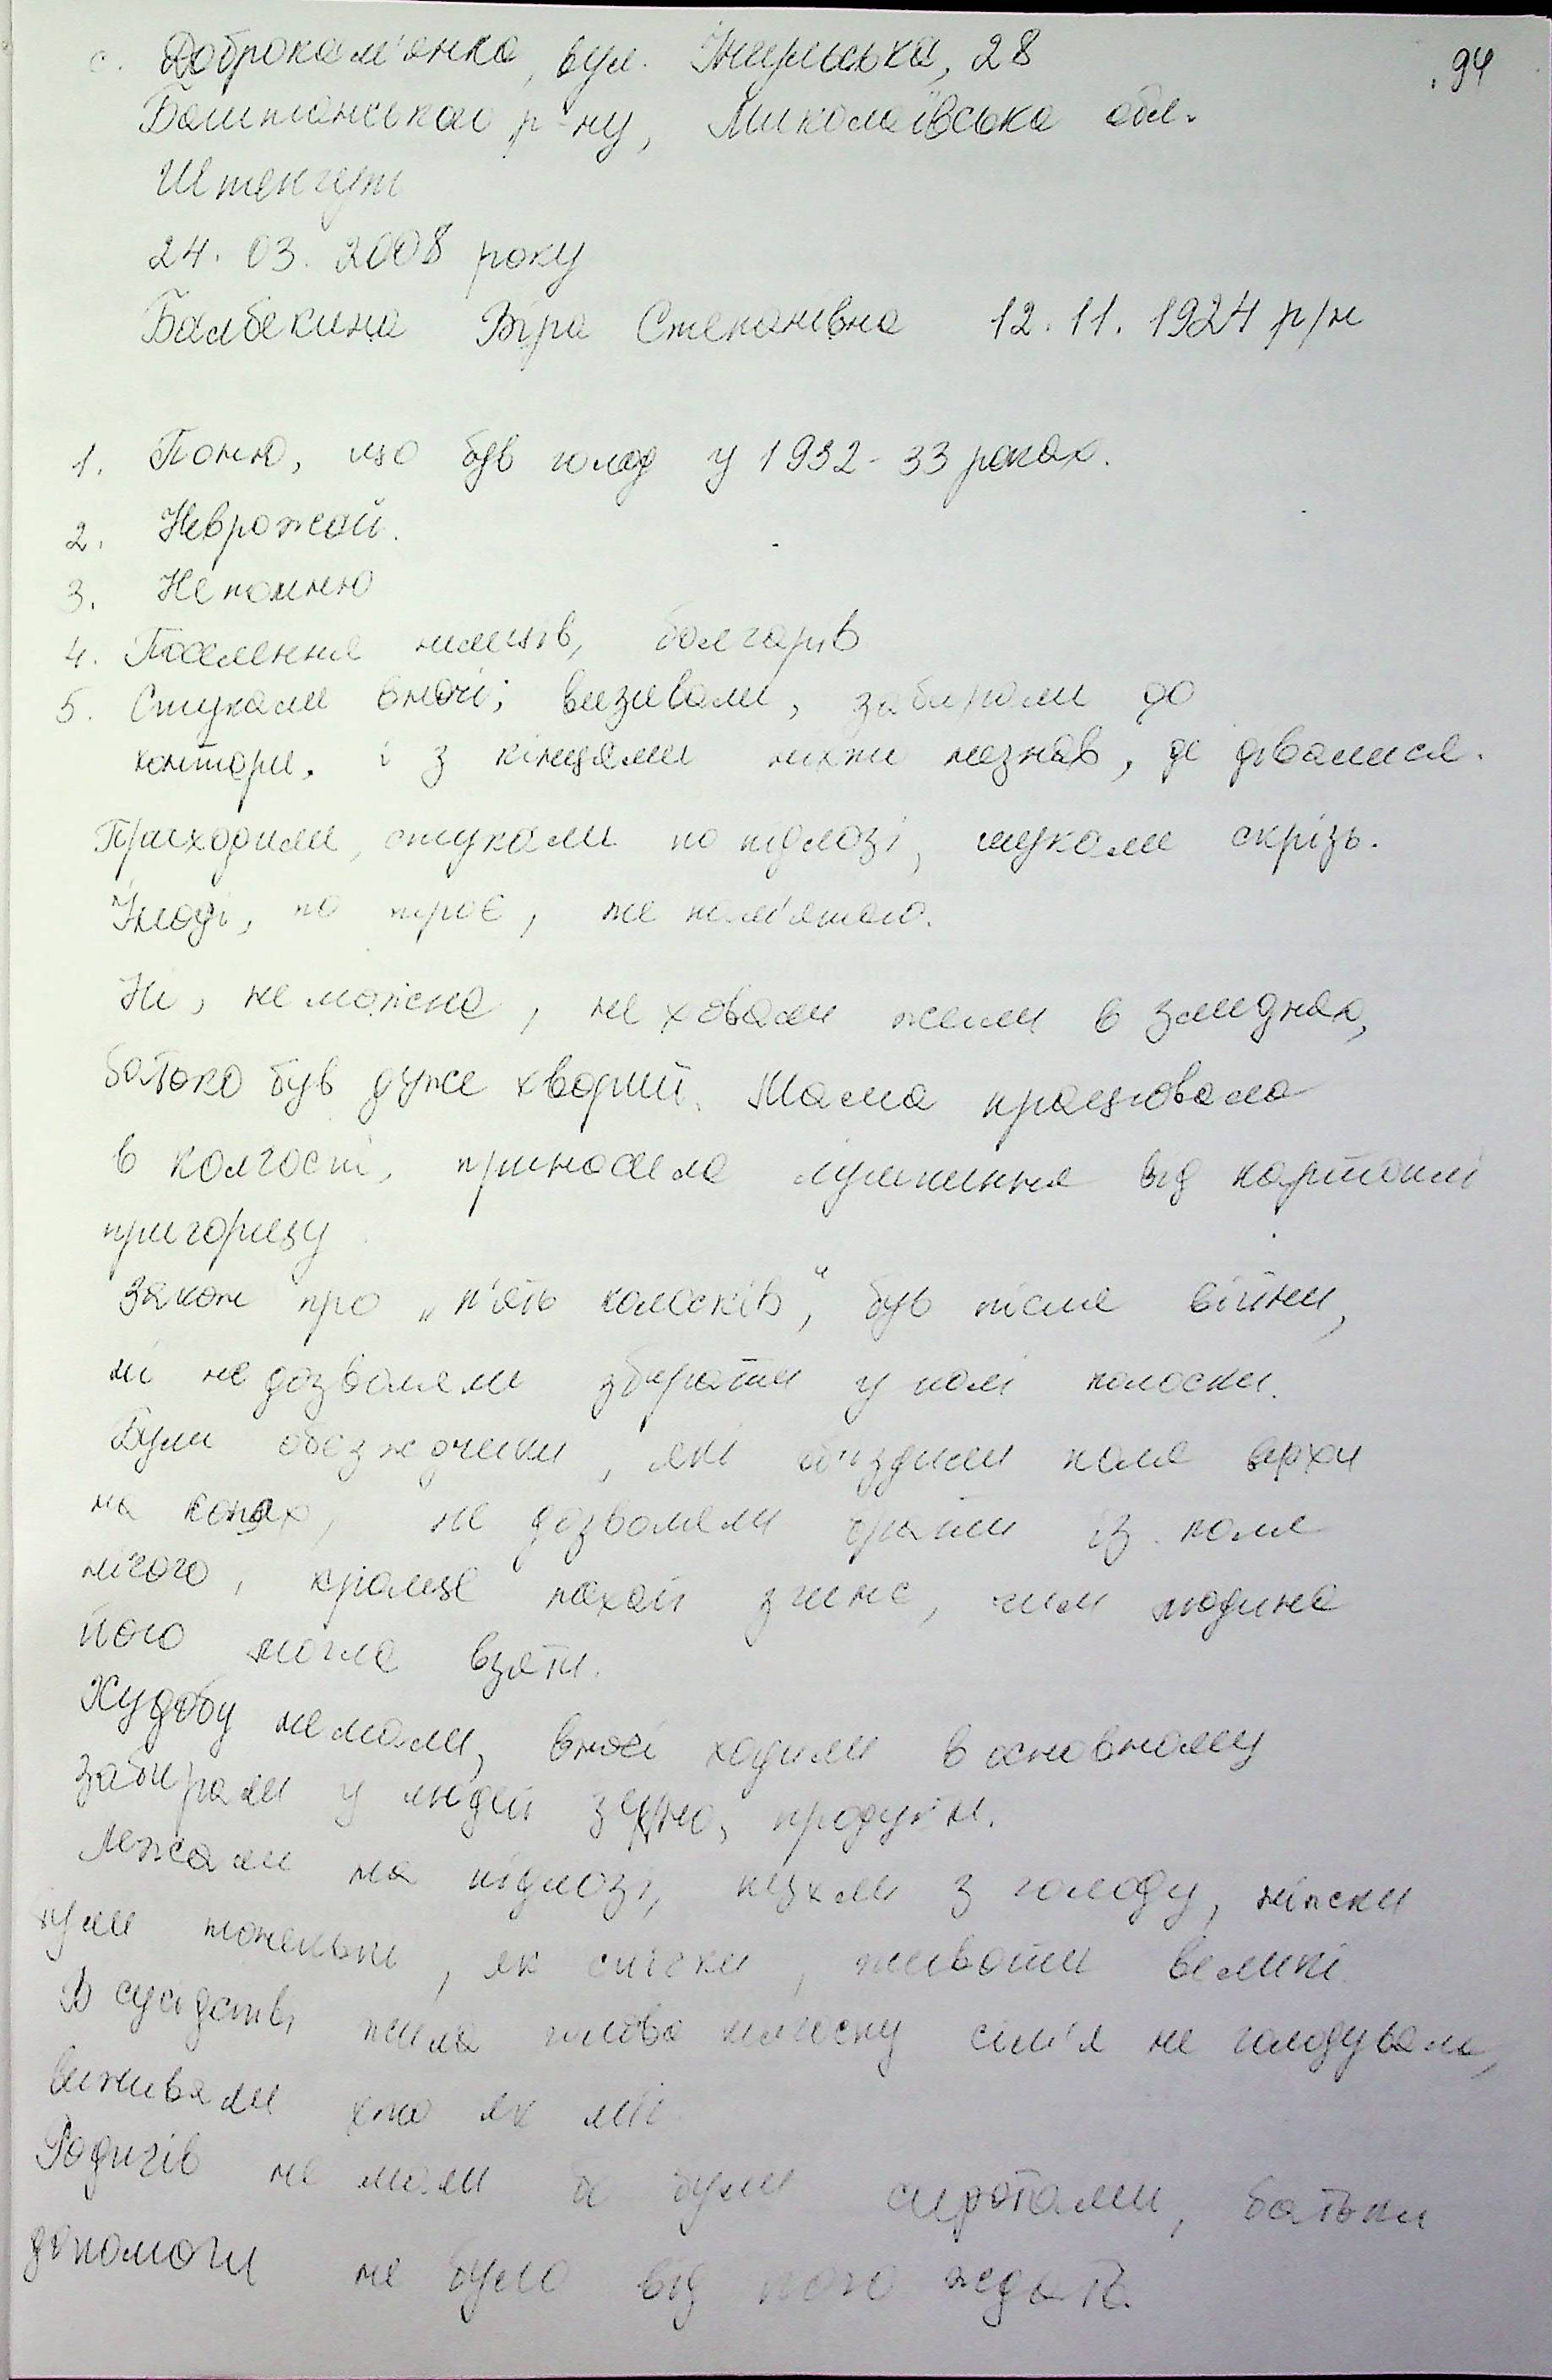 с. Доброкам'янка, вул. Інгульська, 28
94
Баштанського р-ну, Миколаївська обл.
Штенгут
24. 03. 2008 року
Балбекина Віра Степанівна 12. 11. 1924 р/н
1. Помню, що був голод у 1932-33 роках.
2. Неврожай.
3. Не помню
4. Поселення німців, болгарів
5. Стукали вночі; визивали, забирали до
контори. і з кінцями ніхто незнав, де дівалися.
Приходили, стукали по підлозі, шукали скрізь.
Іноді, по троє, не пам'ятаю.
Ні, не можна, не ховали жили в злиднях,
батько був дуже хворий. Мама працювала
в колгоспі, приносила лушпиння від картоплі
пригорщу
Закон про „п'ять колосків", був після війни,
ні не дозволяли збирати у полі колоски.
Були обєзжчики, які об'їздили поля верхи
на конях, не дозволяли брати із поля
нічого, краще нехай згине, чим людина
його могла взяти.
Худобу не мали, вночі ходили в основному
забирали у людей зерно, продукти.
Лежали на підлозі, пухли з голоду, ніжки
були тоненькі, як сірники, животи великі.
В сусідстві жила голова колгоспу сім'я не голодувала,
виживали хто як міг
Родичів не мали бо були сиротами, батьки
допомоги не було від кого ждать.